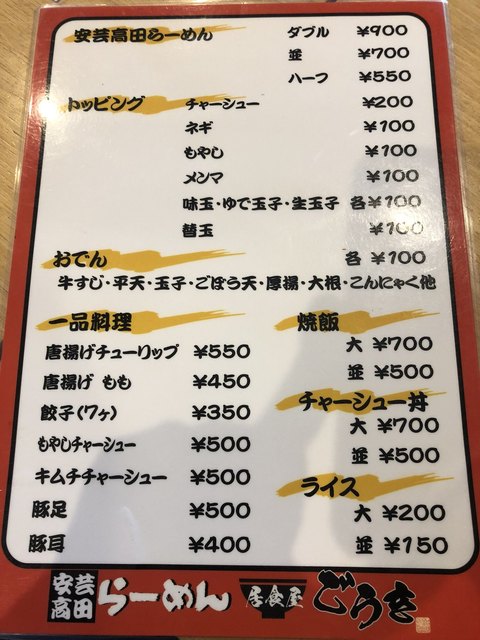 安芸高田らーめん ダブル ¥900
並 ¥700
ハーフ ¥550
トッピング チャーシュー ¥200
ネギ ¥100
もやし ¥100
メンマ ¥100
味玉・ゆで玉子・生玉子 各¥100
替玉 ¥100
おでん 各 ¥100
牛すじ・平天・玉子・ごぼう天・厚揚・大根・こんにゃく他
一品料理
唐揚げチューリップ ¥550
唐揚げ もも ¥450
餃子(7ヶ) ¥350
もやしチャーシュー ¥500
キムチチャーシュー ¥500
豚足 ¥500
豚耳 ¥400
焼飯
大 ¥700
並 ¥500
チャーシュー丼
大 ¥700
並 ¥500
ライス
大 ¥200
並 ¥150
安芸高田らーめん 居食屋 ごうき